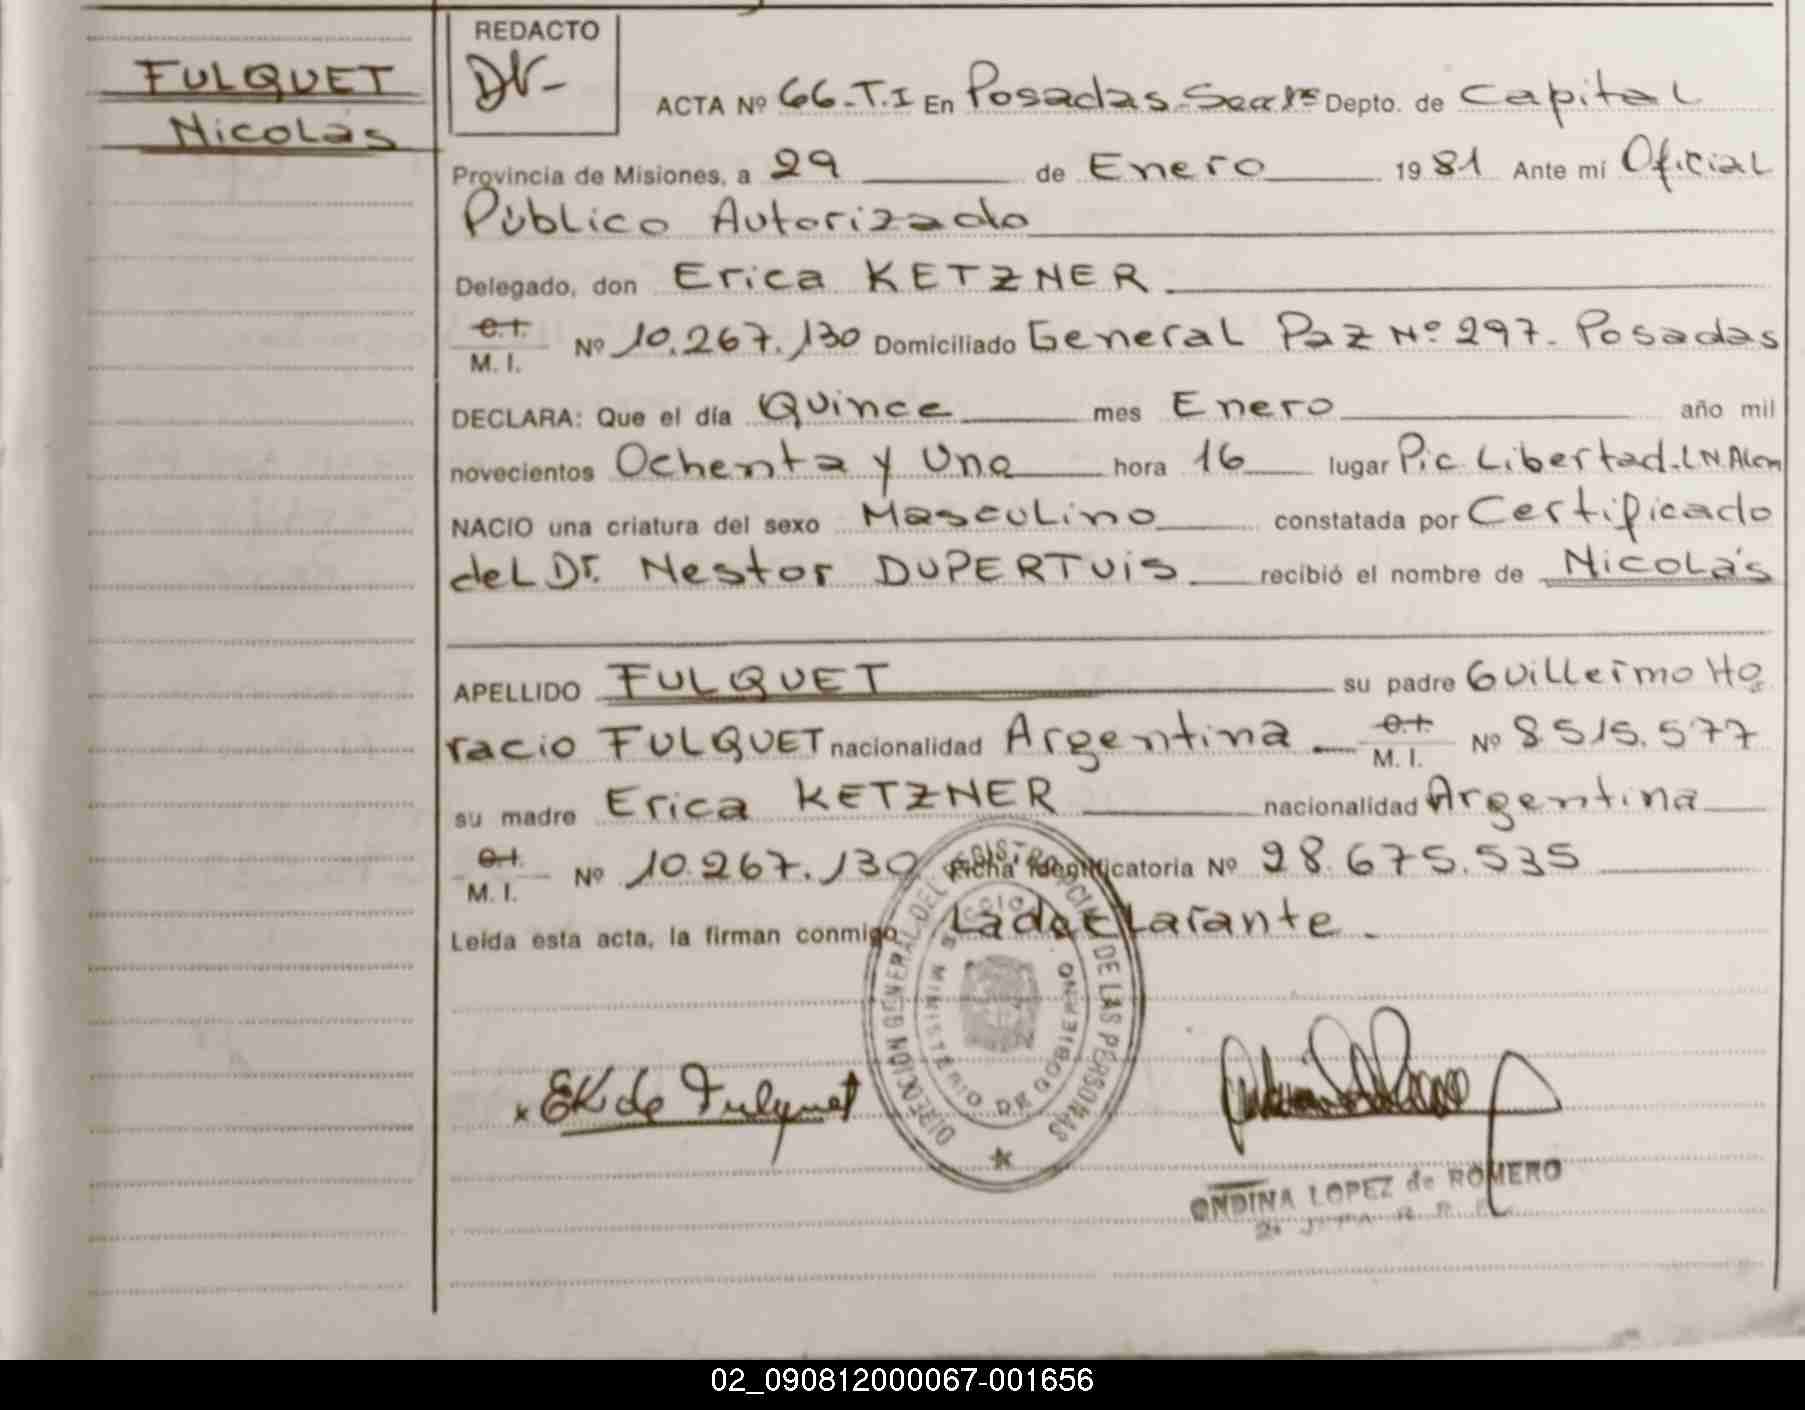 FULQUET
Nicolás
REDACTO
ACTA Nº 66-T.I En Posadas-Secc 1ª Depto. de Capital
Provincia de Misiones, a 29 de Enero 1981 Ante mí Oficial
Público Autorizado
Delegado, don Erica KETZNER
C.I.
M. I. Nº 10.267.130 Domiciliado General Paz Nº 297. Posadas
DECLARA: Que el día Quince mes Enero año mil
novecientos Ochenta y Uno hora 16 lugar Pic. Libertad-L N. Alem
NACIO una criatura del sexo Masculino constatada por Certificado
del Dr. Nestor DUPERTUIS recibió el nombre de Nicolás
APELLIDO FULQUET su padre Guillermo Ho
racio FULQUET nacionalidad Argentina C.I. M. I. Nº 8.515.577
su madre Erica KETZNER nacionalidad Argentina
C.I.
M. I. Nº 10.267.130 Ficha Identificatoria Nº 28.675.535
Leída esta acta, la firman conmigo La declarante.
DIRECCIÓN GENERAL DEL REGISTRO PCIAL. DE LAS PERSONAS
MINISTERIO DE GOBIERNO
x EK de Fulquet
ONDINA LOPEZ de ROMERO
02_090812000067-001656